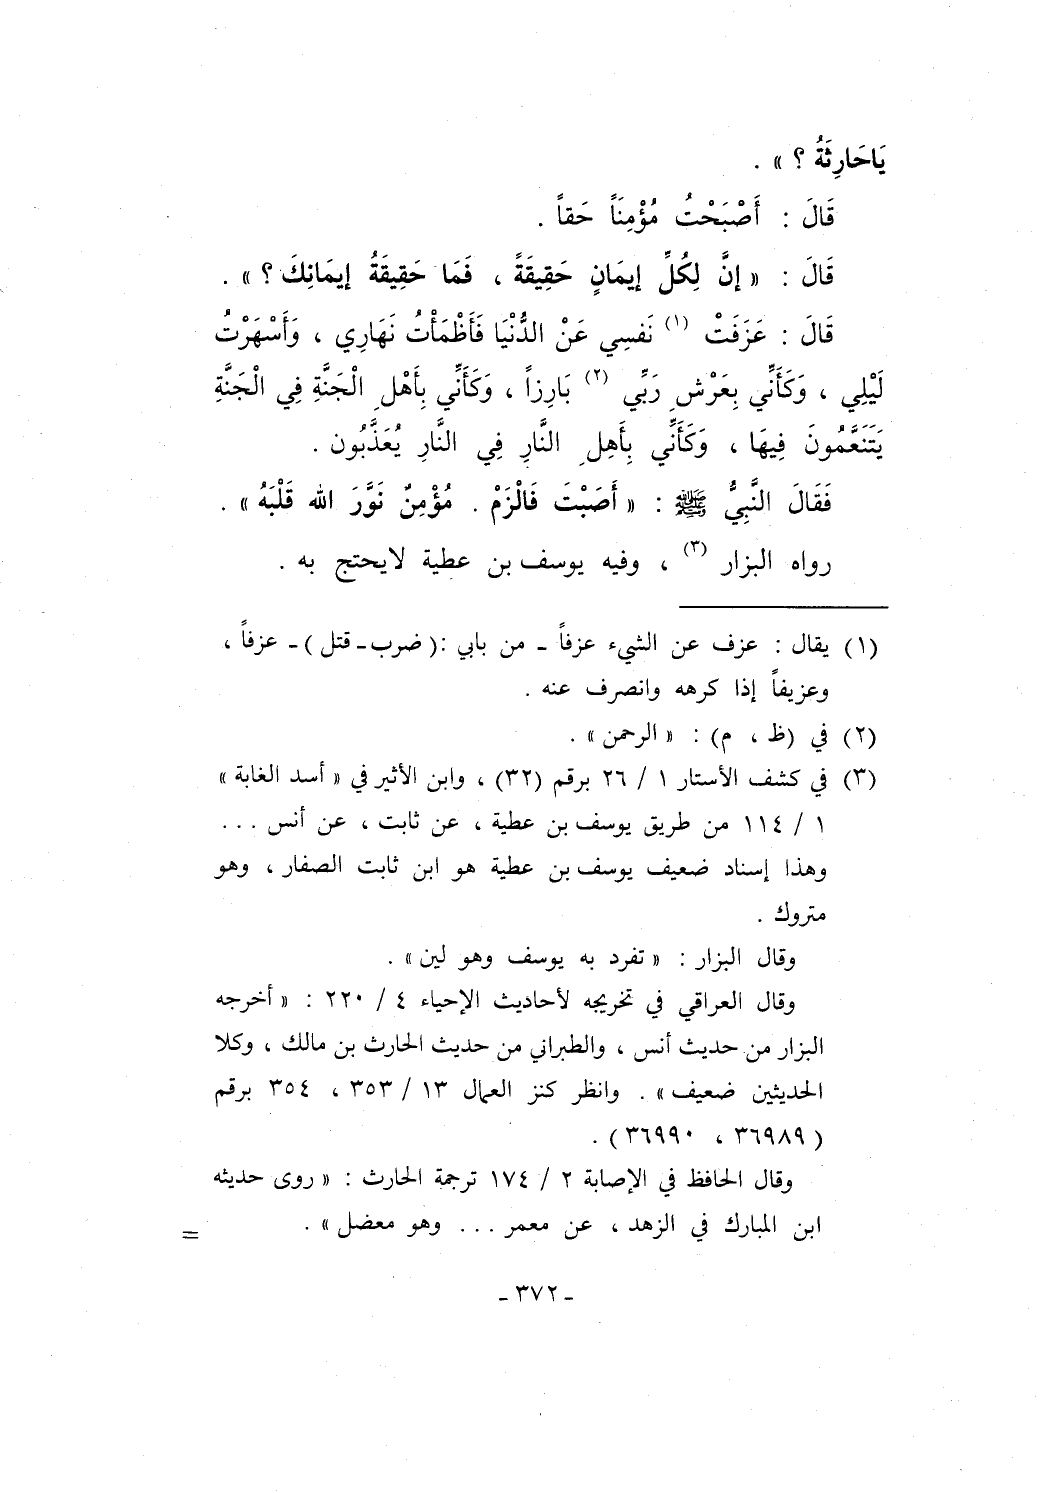 يَاحَارِثَةُ ؟ » .
قَالَ : أَصْبَحْتُ مُؤْمِنَاً حَقاً .
قَالَ : « إنَّ لِكُلِّ إيمَانٍ حَقِيقَةً ، فَمَا حَقِيقَةُ إيمَانِكَ ؟ » .
قَالَ : عَزَفَتْ (١) نَفسِي عَنْ الدُّنْيَا فَأَظْمَأْتُ نَهَارِي ، وَأَسْهَرْتُ
لَيْلِي ، وَكَأَنِّي بِعَرْشِ رَبِّي (٢) بَارِزاً ، وَكَأَنِّي بِأَهْلِ الْجَنَّةِ فِي الْجَنَّةِ
يَتَنَعَّمُونَ فِيهَا ، وَكَأَنِّي بِأَهِلِ النَّارِ فِي النَّارِ يُعَذَّبُون .
فَقَالَ النَّبِيُّ ﷺ : « أَصَبْتَ فَالْزَمْ . مُؤْمِنٌ نَوَّرَ الله قَلْبَهُ » .
رواه البزار (٣) ، وفيه يوسف بن عطية لايحتج به .
(١) يقال : عزف عن الشيء عزفاً - من بابي :( ضرب - قتل ) - عزفاً ،
وعزيفاً إذا كرهه وانصرف عنه .
(٢) في (ظ ، م) : « الرحمن » .
(٣) في كشف الأستار ١ / ٢٦ برقم (٣٢) ، وابن الأثير في « أسد الغابة »
١ / ١١٤ من طريق يوسف بن عطية ، عن ثابت ، عن أنس ...
وهذا إسناد ضعيف يوسف بن عطية هو ابن ثابت الصفار ، وهو
متروك .
وقال البزار : « تفرد به يوسف وهو لين » .
وقال العراقي في تخريجه لأحاديث الإحياء ٤ / ٢٢٠ : « أخرجه
البزار من حديث أنس ، والطبراني من حديث الحارث بن مالك ، وكلا
الحديثين ضعيف » . وانظر كنز العمال ١٣ / ٣٥٣ ، ٣٥٤ برقم
( ٣٦٩٨٩ ، ٣٦٩٩٠ ) .
وقال الحافظ في الإصابة ٢ / ١٧٤ ترجمة الحارث : « روى حديثه
ابن المبارك في الزهد ، عن معمر ... وهو معضل » . =
- ٣٧٢ -